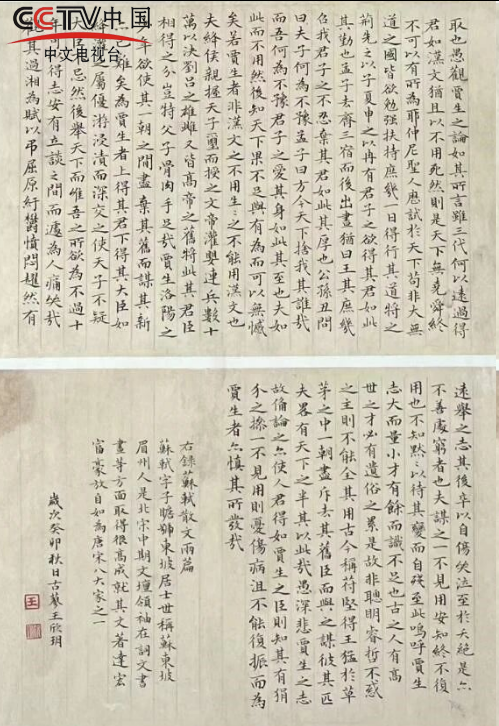 CCTV中国
中文电视台
取也愚觀賈生之論如其所言雖三代何以遠過得
君如漢文猶且以不用死然則是天下無堯舜終
不可以有所為耶仲尼聖人歷試於天下苟非大無
道之國皆欲勉強扶持庶幾一日得行其道將之
荊先之以子夏申之以冉有君子之欲得其君如此
其勤也孟子去齊三宿而後出晝猶曰王其庶幾
召我君子之不忍棄其君如此其厚也公孫丑問
曰夫子何為不豫孟子曰方今天下捨我其誰哉
而吾何為不豫君子之愛其身如此其至也夫如
此而不用然後知天下果不足與有為而可以無憾
矣若賈生者非漢文之不用生生之不能用漢文也
夫絳侯親握天子璽而授之文帝灌嬰連兵數十
萬以決劉呂之雄雌又皆高帝之舊將此其君臣
相得之分豈特父子骨肉手足哉賈生洛陽之
年欲使其一朝之間盡棄其舊而謀其新
已難矣為賈生者上得其君下得其大臣如
灌之屬優游浸漬而深交之使天子不疑
大臣不忌然後舉天下而唯吾之所欲為不過十
年可得志安有立談之間而遽為人痛哭哉
其過湘為賦以弔屈原紆鬱憤悶趯然有
遠舉之志其後卒以自傷哭泣至於夭絕是亦
不善處窮者也夫謀之一不見用安知終不復
用也不知默默以待其變而自殘至此嗚呼賈生
志大而量小才有餘而識不足也古之人有高
世之才必有遺俗之累是故非聰明睿哲不惑
之主則不能全其用古今稱苻堅得王猛於草
茅之中一朝盡斥去其舊臣而與之謀彼其匹
夫略有天下之半其以此哉愚深悲賈生之志
故備論之亦使人君得如賈生之臣則知其有狷
介之操一不見用則憂傷病沮不能復振而為
賈生者亦慎其所發哉
右錄蘇軾散文兩篇
蘇軾字子瞻號東坡居士世稱蘇東坡
眉州人是北宋中期文壇領袖在詞文書
畫等方面取得很高成就其文著達宏
富豪放自如為唐宋八大家之一
歲次癸卯秋日古藝王欣玥
王